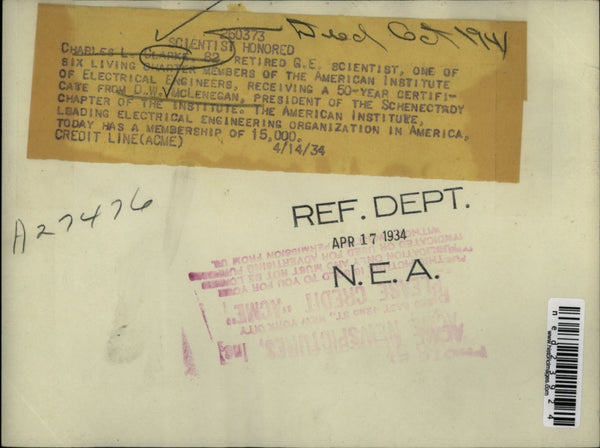 260373
Died Oct 1941
SCIENTIST HONORED
CHARLES L. CLARKE, 82, RETIRED G.E. SCIENTIST, ONE OF
SIX LIVING CHARTER MEMBERS OF THE AMERICAN INSTITUTE
OF ELECTRICAL ENGINEERS, RECEIVING A 50-YEAR CERTIFI-
CATE FROM D.W. MCLENEGAN, PRESIDENT OF THE SCHENECTADY
CHAPTER OF THE INSTITUTE. THE AMERICAN INSTITUTE,
LEADING ELECTRICAL ENGINEERING ORGANIZATION IN AMERICA,
TODAY HAS A MEMBERSHIP OF 15,000.
CREDIT LINE(ACME) 4/14/34
A27476
REF. DEPT.
APR 17 1934
N.E.A.
ACME NEWSPICTURES, Inc
EAST 42ND ST., NEW YORK CITY
PLEASE CREDIT "ACME"
ned23924